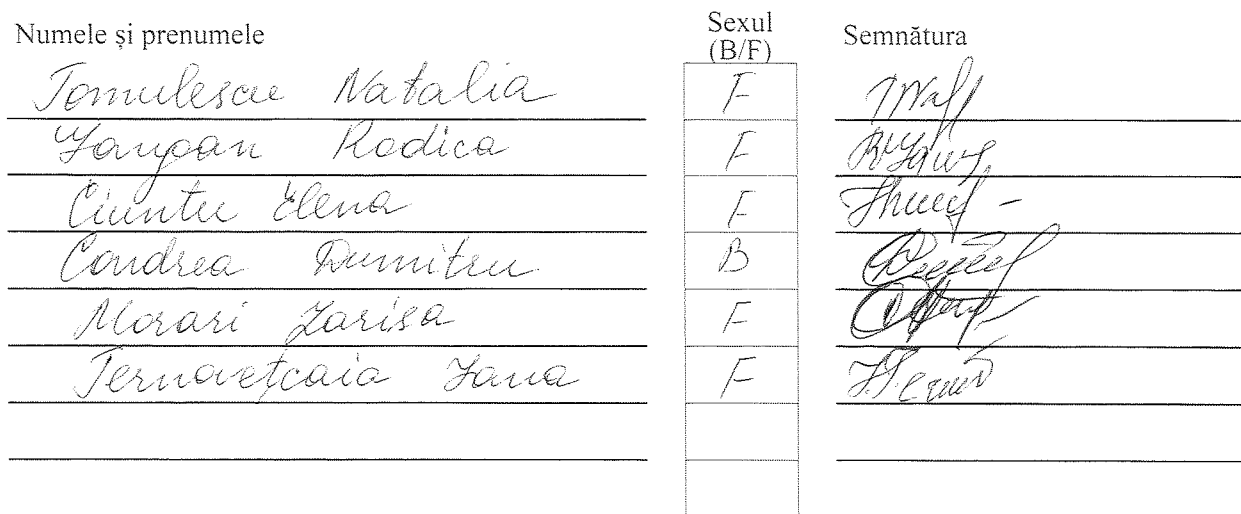 Numele și prenumele Sexul (B/F) Semnătura
Tomulescu Natalia F
Rodica F
Ciuntu Elena F
Condrea Dumitru B
Morari Larisa F
Ternavețcaia Iana F